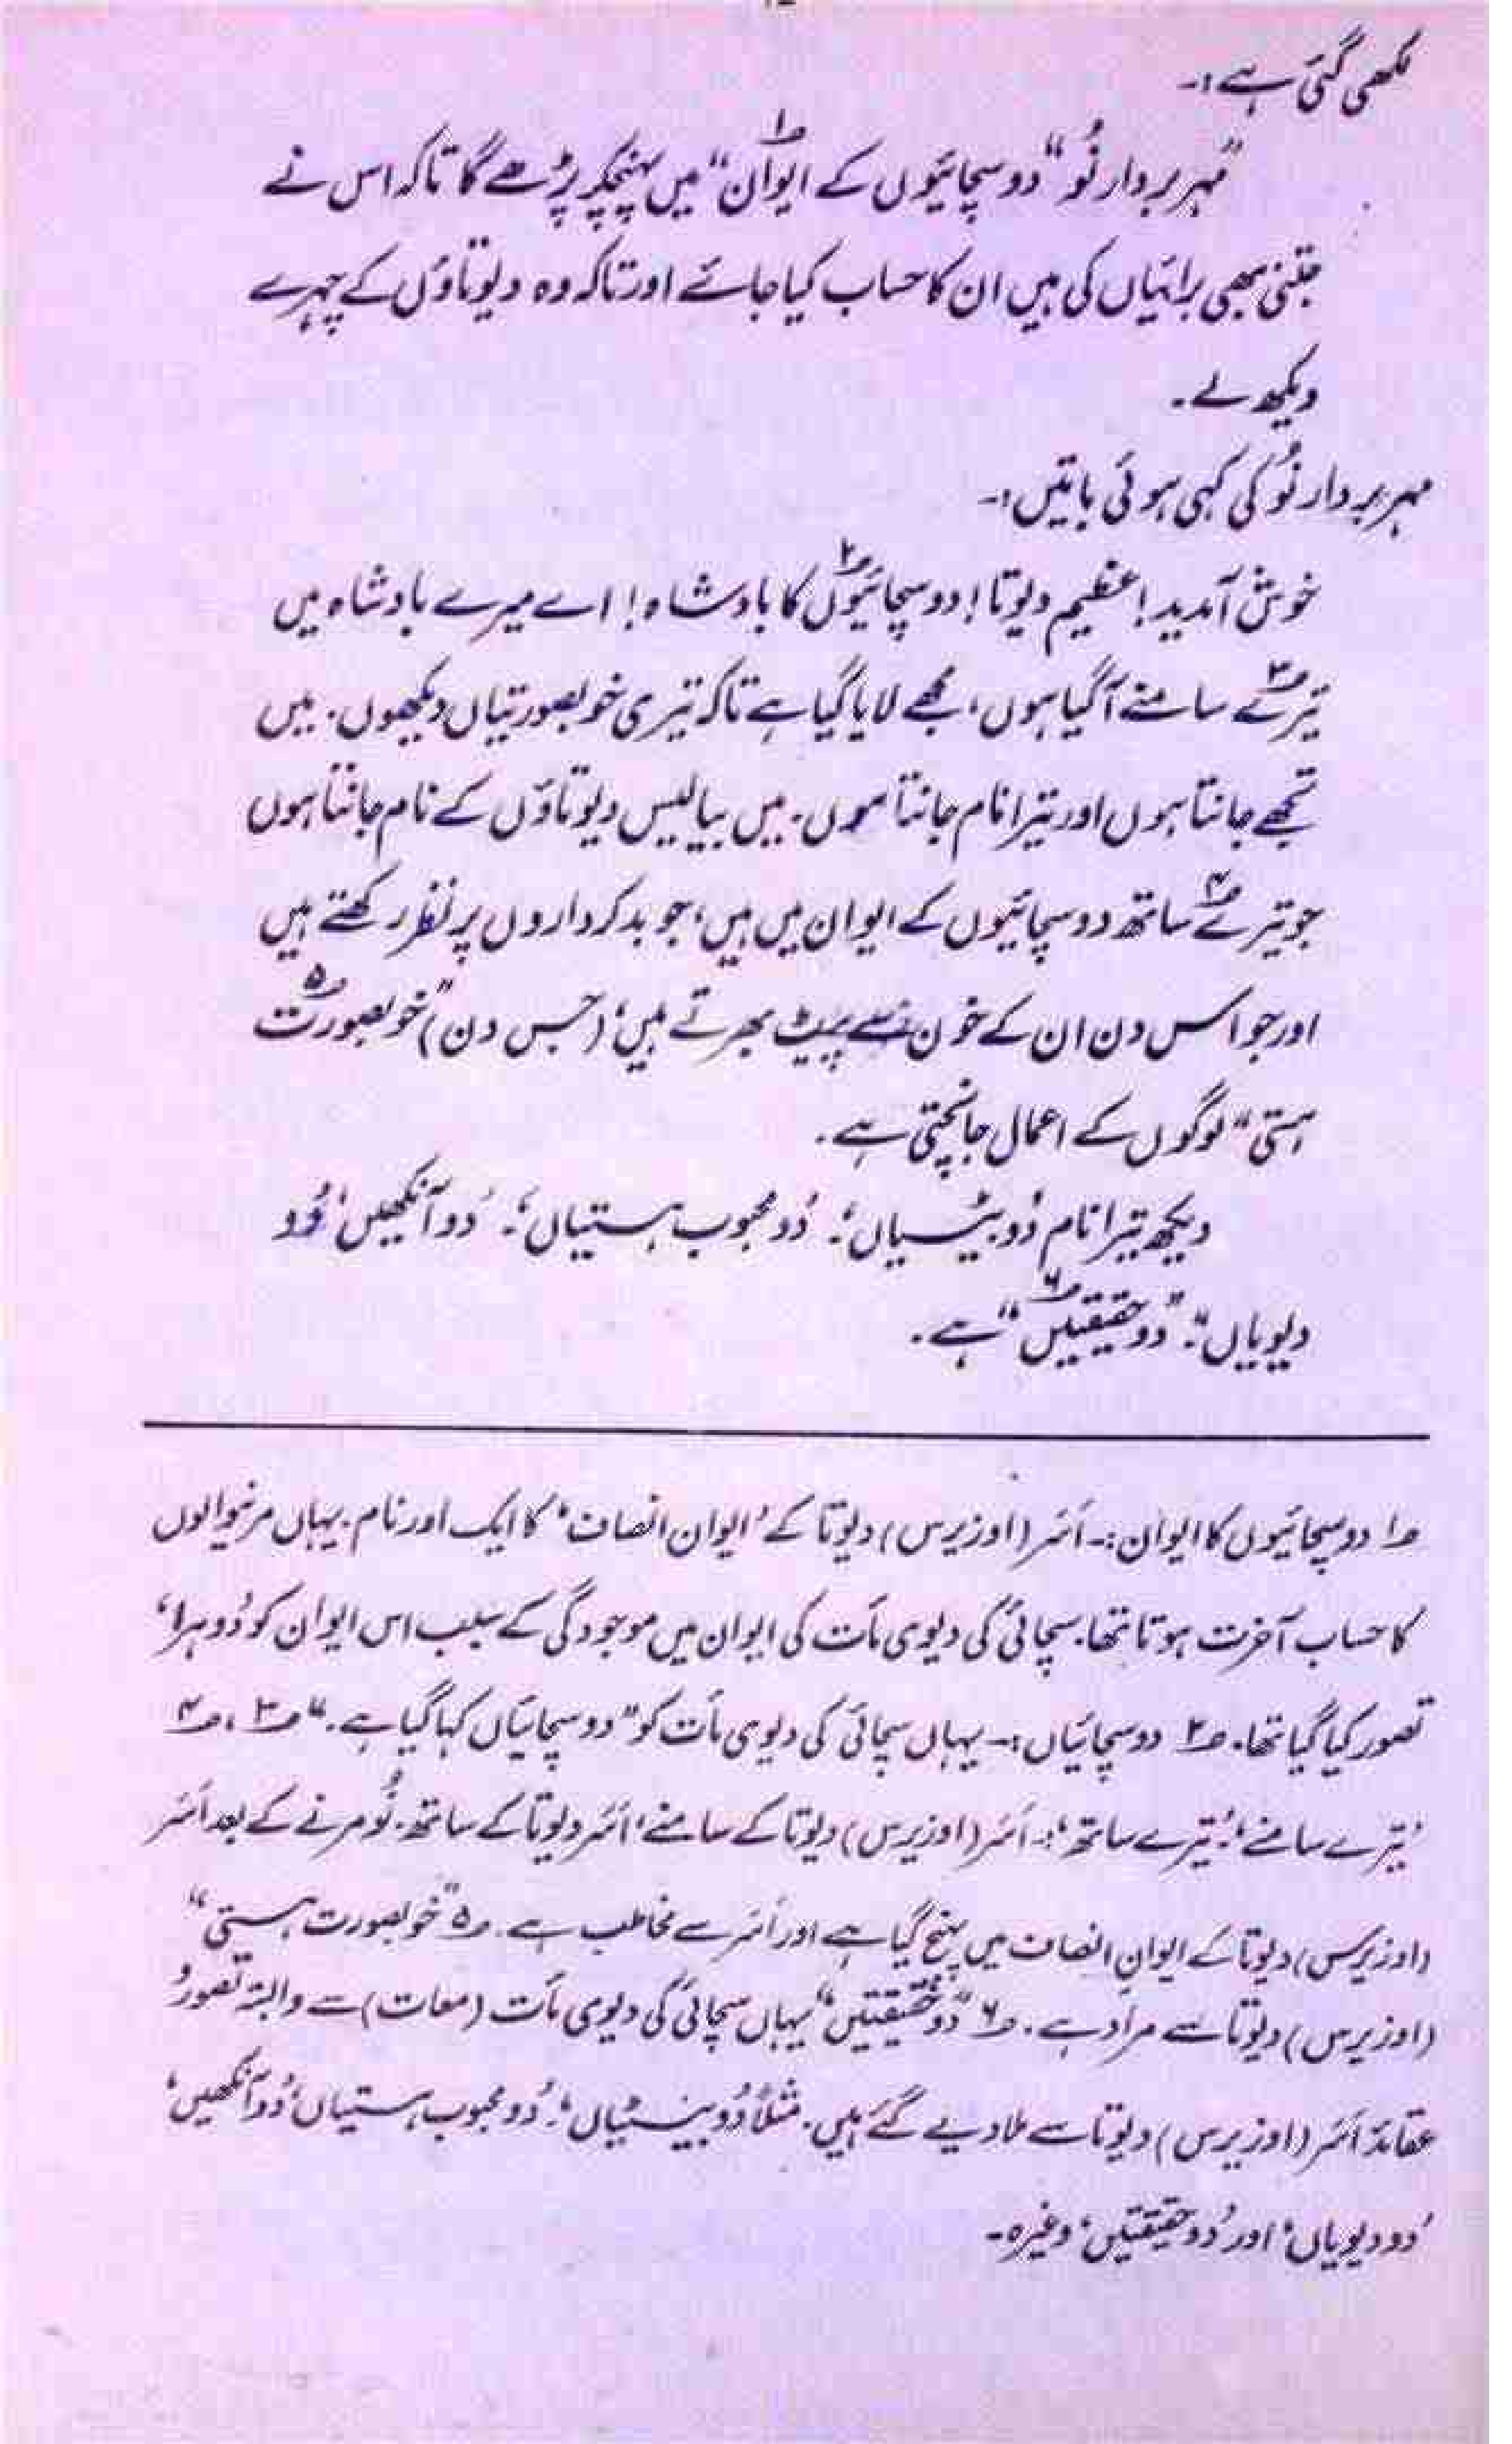 لکھی گئی ہے :-
"مہر بردار نُو "دو سچائیوں کے ایوان" میں پہنچکر پڑھے گا تاکہ اس نے
جتنی بھی برائیاں کی ہیں ان کا حساب کیا جائے اور تاکہ وہ دیوتاؤں کے چہرے
دیکھ لے۔
مہر بردار نُو کی کہی ہوئی باتیں :-
خوش آمدید! عظیم دیوتا! دو سچائیوں ؂۲ کا بادشاہ! اے میرے بادشاہ میں
تیرے ؂۳ سامنے آگیا ہوں، مجھے لایا گیا ہے تاکہ تیری خوبصورتیاں دیکھوں۔ میں
تجھے جانتا ہوں اور تیرا نام جانتا ہوں۔ میں بیالیس دیوتاؤں کے نام جانتا ہوں
جو تیرے ؂۴ ساتھ دو سچائیوں کے ایوان میں ہیں، جو بدکرداروں پر نظر رکھتے ہیں
اور جو اس دن ان کے خون سے پیٹ بھرتے ہیں، (جس دن) "خوبصورت ؂۵
ہستی" لوگوں کے اعمال جانچتی ہے۔
دیکھ تیرا نام 'دو بیٹیاں'۔ 'دو محبوب ہستیاں'۔ 'دو آنکھیں' 'دو
دیویاں"۔ "دو حقیقتیں ؂۶" ہے۔
؂۱ دو سچائیوں کا ایوان :- اَسَر (اوزیرس) دیوتا کے 'ایوان انصاف' کا ایک اور نام۔ یہاں مرنیوالوں
کا حساب آخرت ہوتا تھا۔ سچائی کی دیوی مأت کی ایوان میں موجودگی کے سبب اس ایوان کو 'دوہرا'
تصور کیا گیا تھا۔ ؂۲ دو سچائیاں :- یہاں سچائی کی دیوی مأت کو "دو سچائیاں کہا گیا ہے۔" ؂۳، ؂۴
'تیرے سامنے'۔ 'تیرے ساتھ' :- اَسَر (اوزیرس) دیوتا کے سامنے' اَسَر دیوتا کے ساتھ۔ نُو مرنے کے بعد اَسَر
(اوزیرس) دیوتا کے ایوانِ انصاف میں پہنچ گیا ہے اور اَسَر سے مخاطب ہے۔ ؂۵ "خوبصورت ہستی"
(اوزیرس) دیوتا سے مراد ہے۔ ؂۶ "دو حقیقتیں" یہاں سچائی کی دیوی مأت (معات) سے وابستہ تصور و
عقائد اَسَر (اوزیرس) دیوتا سے ملا دیے گئے ہیں۔ مثلاً 'دو بیٹیاں'۔ 'دو محبوب ہستیاں' 'دو آنکھیں'
'دو دیویاں' اور 'دو حقیقتیں' وغیرہ۔